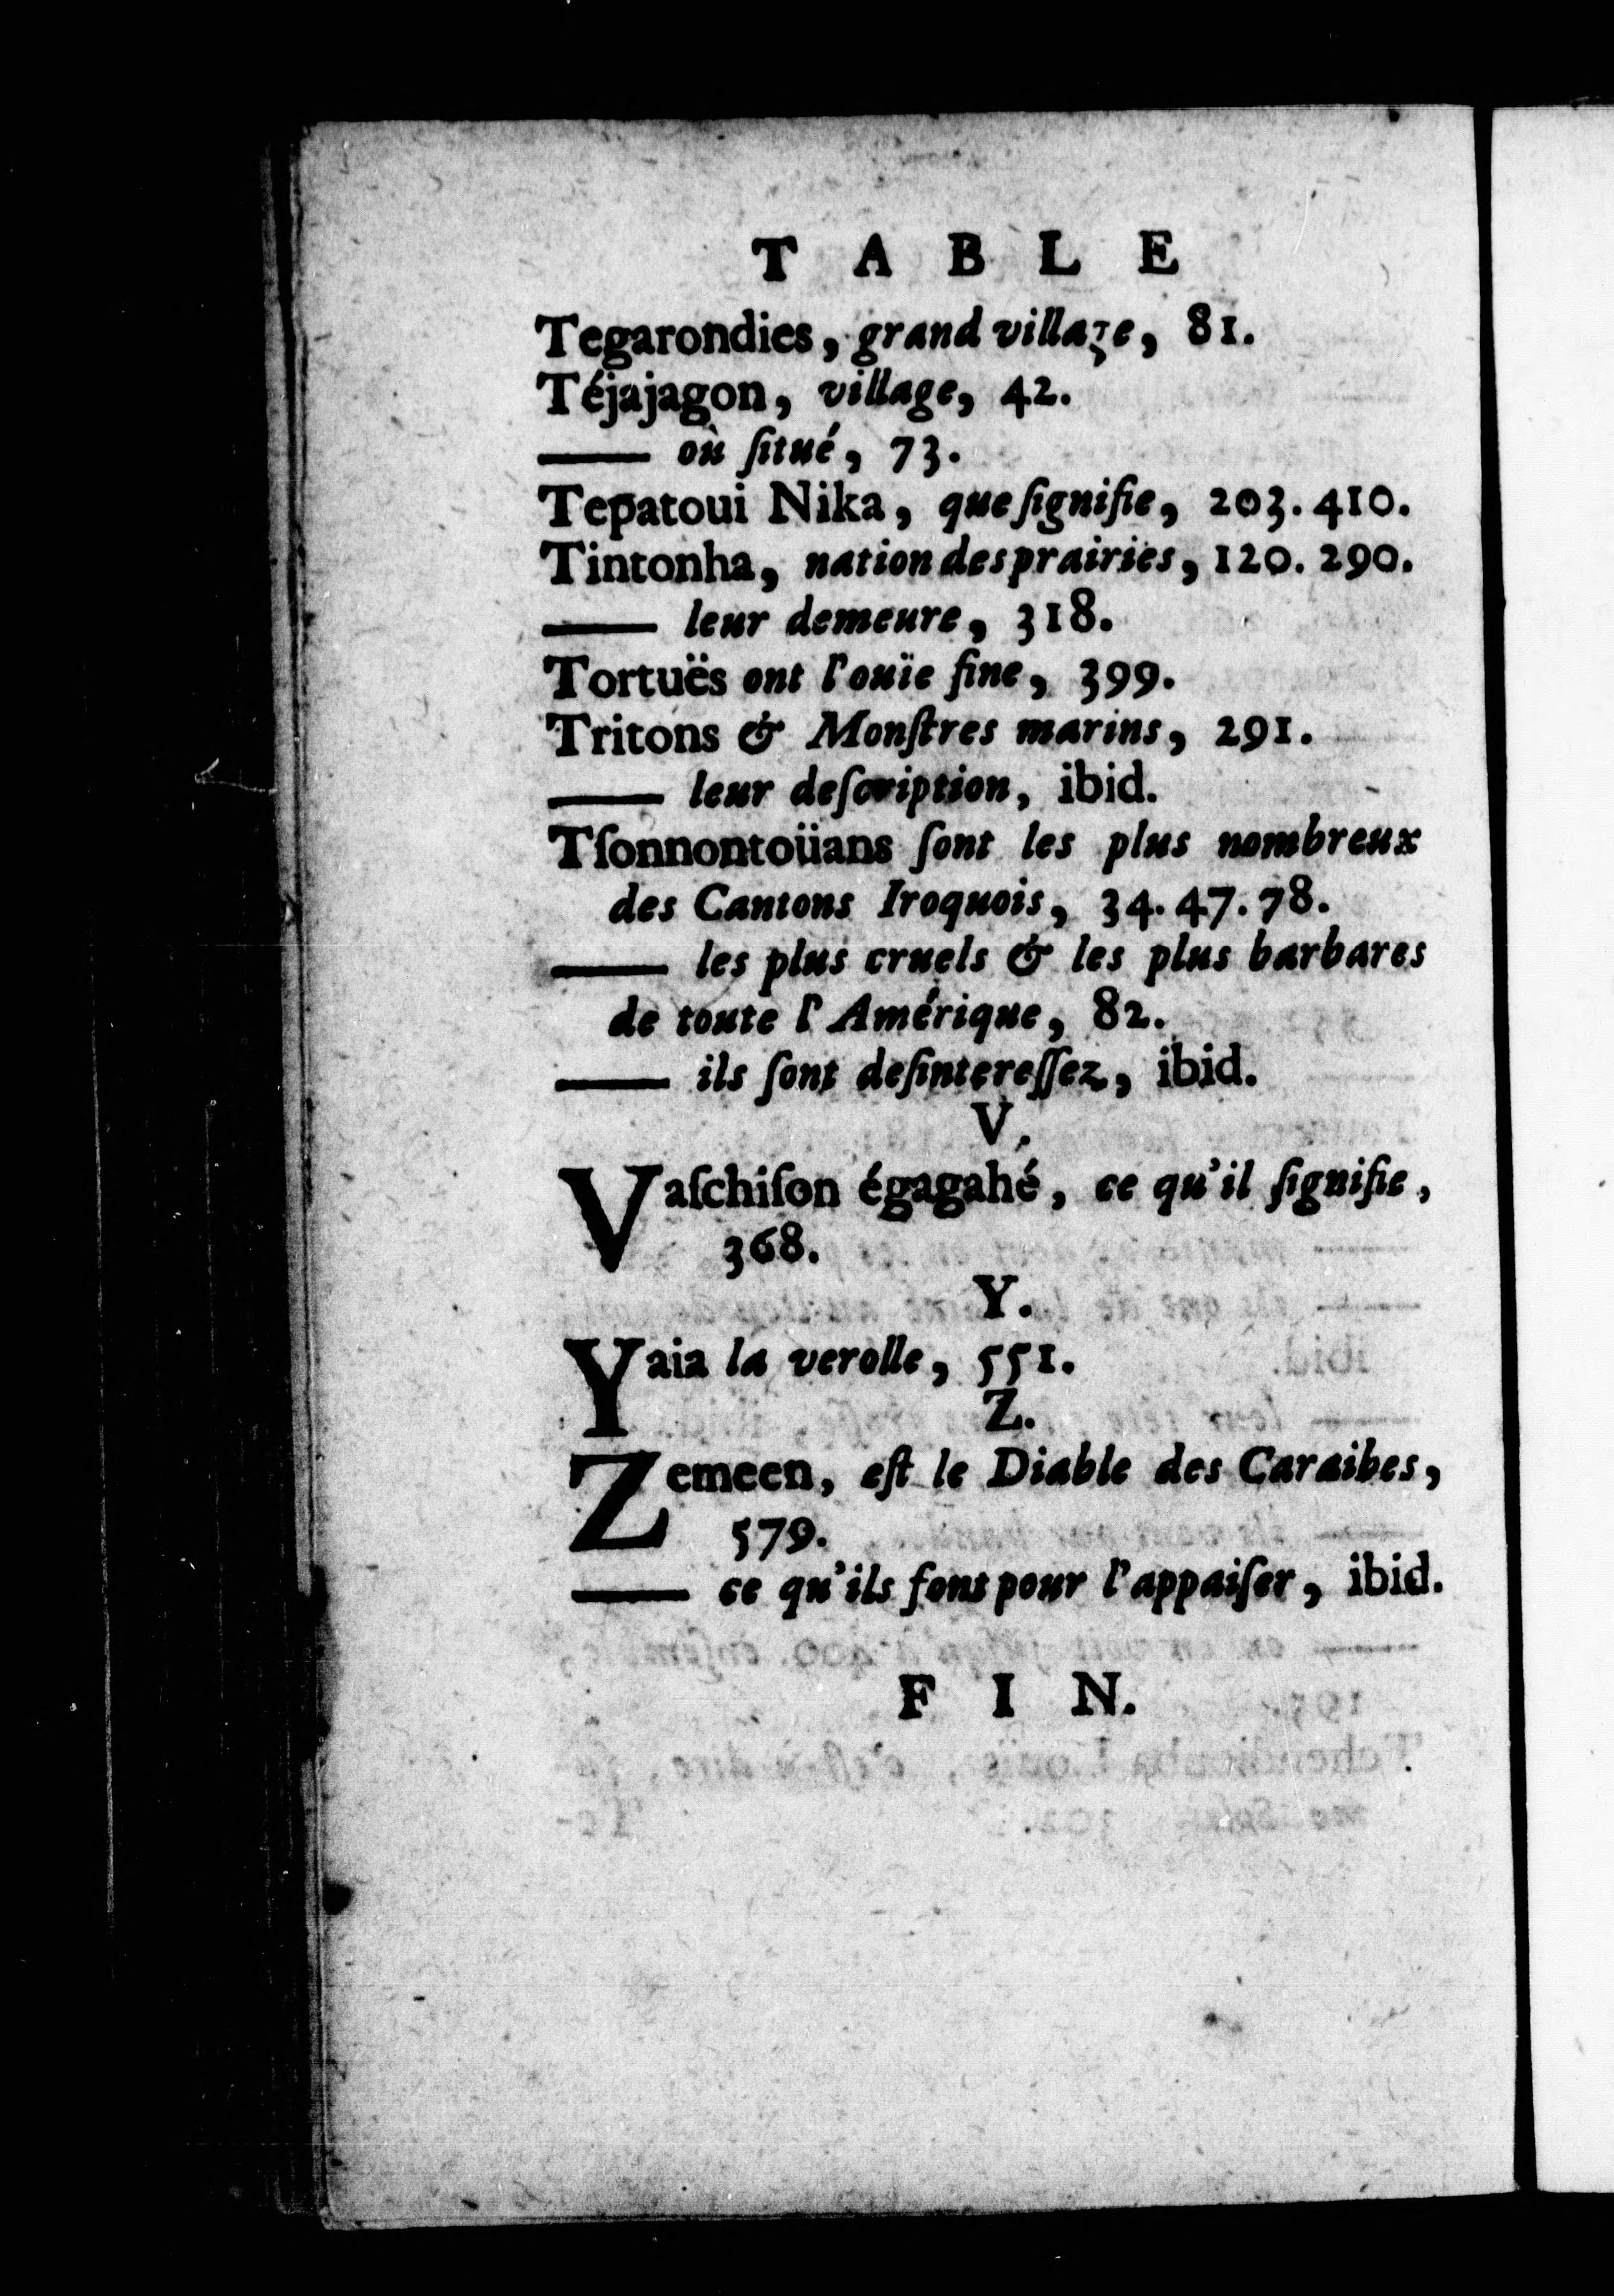 TABLE
Tegarondies, grand village, 81.
Téjajagon, village, 42.
—— où ſitué, 73.
Tepatoui Nika, que ſignifie, 203. 410.
Tintonha, nation des prairies, 120. 290.
—— leur demeure, 318.
Tortuës ont l'ouïe fine, 399.
Tritons & Monſtres marins, 291.
—— leur deſcription, ibid.
Tſonnontoüans ſont les plus nombreux
des Cantons Iroquois, 34. 47. 78.
—— les plus cruels & les plus barbares
de toute l'Amérique, 82.
—— ils ſont deſintereſſez, ibid.
V.
Vaſchiſon égagahé, ce qu'il ſignifie,
368.
Y.
Yaia la verolle, 551.
Z.
Zemeen, eſt le Diable des Caraibes,
579.
—— ce qu'ils font pour l'appaiſer, ibid.
FIN.